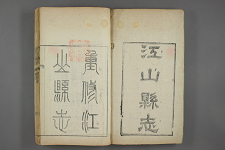 江山縣志
重修江
山縣志